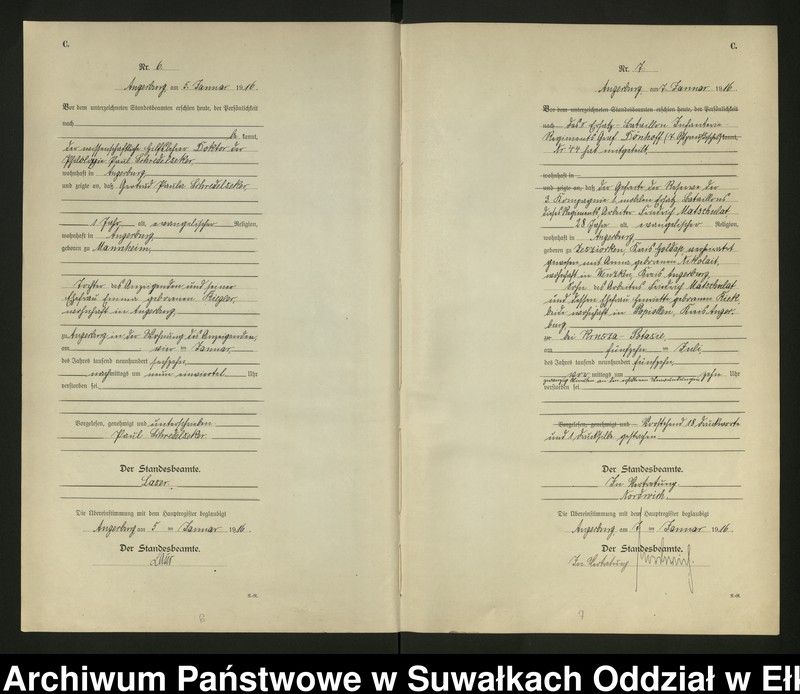 C.
Nr. 6
Angerburg am 5. Januar 1916.
Vor dem unterzeichneten Standesbeamten erschien heute, der Persönlichkeit
nach
be kannt,
der wissenschaftliche Hilfslehrer Doktor der
Philologie Paul Schredelseker
wohnhaft in Angerburg
und zeigte an, daß Gertrud Paula Schredelseker,
1 Jahr alt, evangelischer Religion,
wohnhaft in Angerburg,
geboren zu Mannheim,
Tochter des Anzeigenden und seiner
Ehefrau Emma geborenen Kiegler,
wohnhaft in Angerburg,
zu Angerburg in der Wohnung des Anzeigenden,
am vier ten Januar
des Jahres tausend neunhundert sechzehn
nachmittags um neun einviertel Uhr
verstorben sei.
Vorgelesen, genehmigt und unterschrieben
Paul Schredelseker.
Der Standesbeamte.
Laser.
Die Übereinstimmung mit dem Hauptregister beglaubigt
Angerburg am 5 ten Januar 1916.
Der Standesbeamte.
Laser
C.
Nr. 7
Angerburg am 7. Januar 1916.
Vor dem unterzeichneten Standesbeamten erschien heute, der Persönlichkeit
nach Das Ersatz-Bataillon Infanterie-
Regiments Graf Dönhoff (7. Ostpreußisches)
Nr 44 hat mitgeteilt,
wohnhaft in
und zeigte an, daß der Gefreite der Reserve der
3. Kompagnie mobilen Ersatz-Bataillons
dieses Regiments, Arbeiter Friedrich Matschulat
28 Jahre alt, evangelischer Religion,
wohnhaft in Angerburg,
geboren zu Jesziorken, Kreis Goldap, verheiratet
gewesen mit Anna geborenen Nikolait,
wohnhaft in Wenzken, Kreis Angerburg,
Sohn des Arbeiters Friedrich Matschulat
und dessen Ehefrau Henriette geborenen
beide wohnhaft in Popiollen, Kreis Anger-
burg
zu bei Brusza-Potasie,
am fünfzehn ten Juli
des Jahres tausend neunhundert fünfzehn,
vormittags um zehn Uhr
verstorben sei.
Vorgelesen, genehmigt und Vorstehend 18 Druckworte
und 1 Drucksilbe gestrichen
Der Standesbeamte.
In Vertretung
Nordwich.
Die Übereinstimmung mit dem Hauptregister beglaubigt
Angerburg am 7 ten Januar 1916.
Der Standesbeamte.
In Vertretung
Archiwum Państwowe w Suwałkach Oddział w Ełk